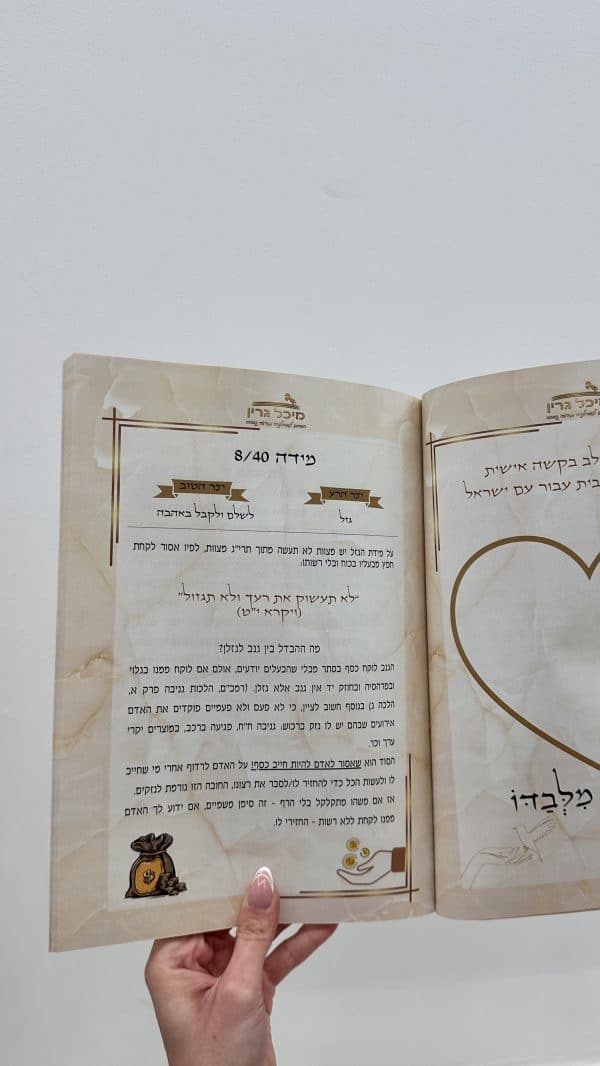 מיכל גרין
מידה 8/40
יצר הרע
יצר הטוב
גזל
לשלם ולקבל באהבה
על מידת הגזל יש מצוות לא תעשה מתוך תרי״ג מצוות, לפיו אסור לקחת
חפץ מבעליו בכוח ובלי רשותו:
״לא תעשוק את רעך ולא תגזול״
(ויקרא י״ט)
מה ההבדל בין גנב לגזלן?
הגנב לוקח כסף בסתר מבלי שהבעלים יודעים, אולם אם לוקח ממנו בגלוי
ובפרהסיה ובחוזק יד אין גנב אלא גזלן. (רמב״ם, הלכות גניבה פרק א,
הלכה ג) בנוסף חשוב לציין, כי לא פעם ולא פעמיים פוקדים את האדם
אירועים שבהם יש לו נזק ברכוש: גניבה ח״ח, פגיעה ברכב, במוצרים יקרי
ערך וכו'.
הסוד הוא שאסור לאדם להיות חייב כסף! על האדם לרדוף אחרי מי שחייב
לו ולעשות הכל כדי להחזיר לו/לסבר את רצונו, החובה הזו גורמת לנזקים.
אז אם משהו מתקלקל בלי הרף - זה סימן משמיים, אם ידוע לך האדם
ממנו לקחת ללא רשות - החזירי לו.
מיכל גרין
לב בקשה אישית
בית עבור עם ישראל
מִלְּבַדּוֹ